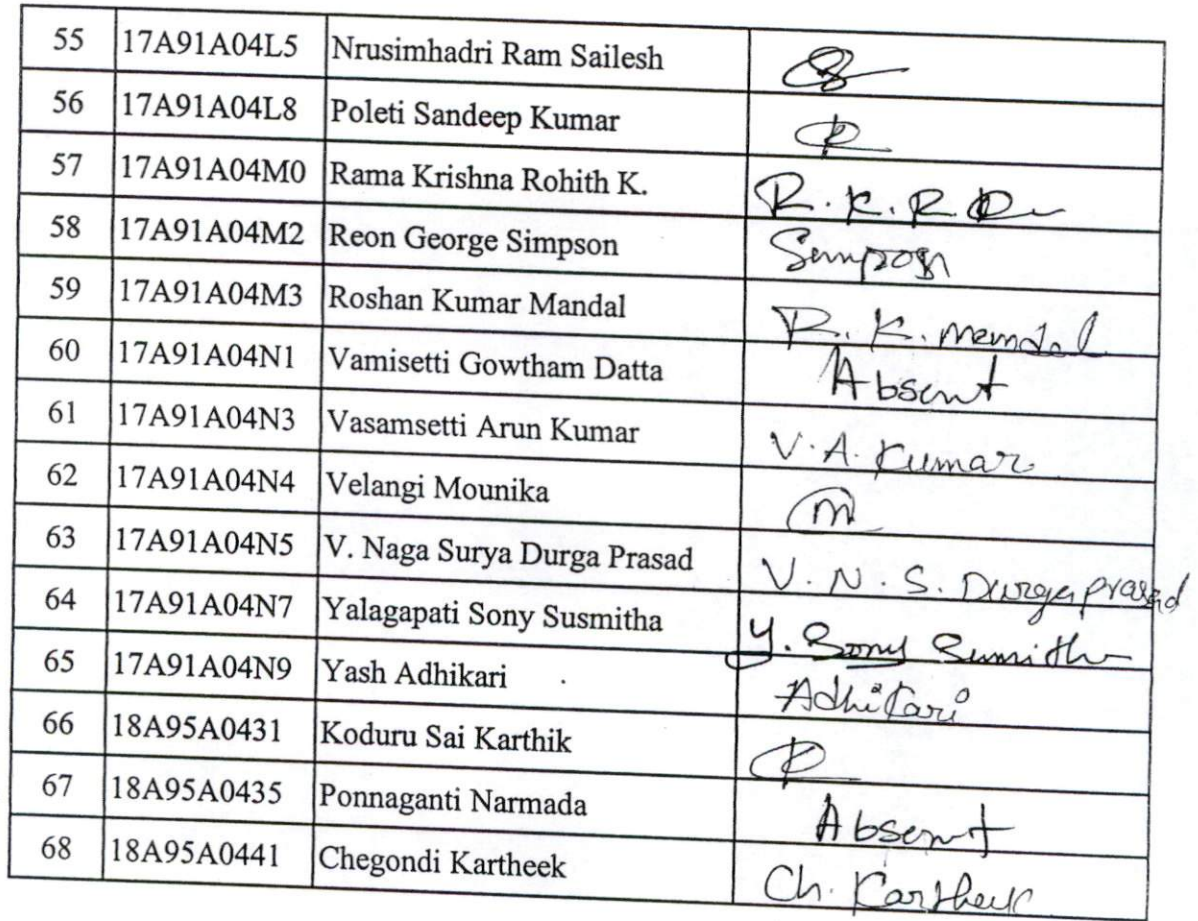 55 17A91A04L5 Nrusimhadri Ram Sailesh
56 17A91A04L8 Poleti Sandeep Kumar
57 17A91A04M0 Rama Krishna Rohith K. R. K. R.
58 17A91A04M2 Reon George Simpson
59 17A91A04M3 Roshan Kumar Mandal R. K.
60 17A91A04N1 Vamisetti Gowtham Datta Absent
61 17A91A04N3 Vasamsetti Arun Kumar V. A. Kumar
62 17A91A04N4 Velangi Mounika M
63 17A91A04N5 V. Naga Surya Durga Prasad V. N. S. Durgaprasad
64 17A91A04N7 Yalagapati Sony Susmitha Y. Sony
65 17A91A04N9 Yash Adhikari Adhikari
66 18A95A0431 Koduru Sai Karthik
67 18A95A0435 Ponnaganti Narmada Absent
68 18A95A0441 Chegondi Kartheek Ch. Kartheek